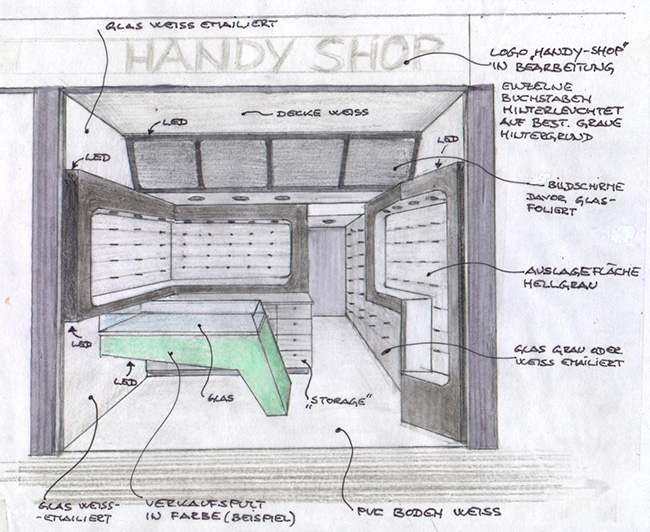 GLAS WEISS EMAILIERT
HANDY SHOP
LOGO „HANDY-SHOP"
IN BEARBEITUNG
EINZELNE
BUCHSTABEN
HINTERLEUCHTET
AUF BEST. GRAUE
HINTERGRUND
DECKE WEISS
LED
LED
LED
BILDSCHIRME
DAVOR GLAS-
FOLIERT
AUSLAGEFLÄCHE
HELLGRAU
LED
GLAS GRAU ODER
WEISS EMAILIERT
LED
GLAS
„STORAGE"
GLAS WEISS-
-EMAILIERT
VERKAUFSPULT
IN FARBE (BEISPIEL)
PVC BODEN WEISS